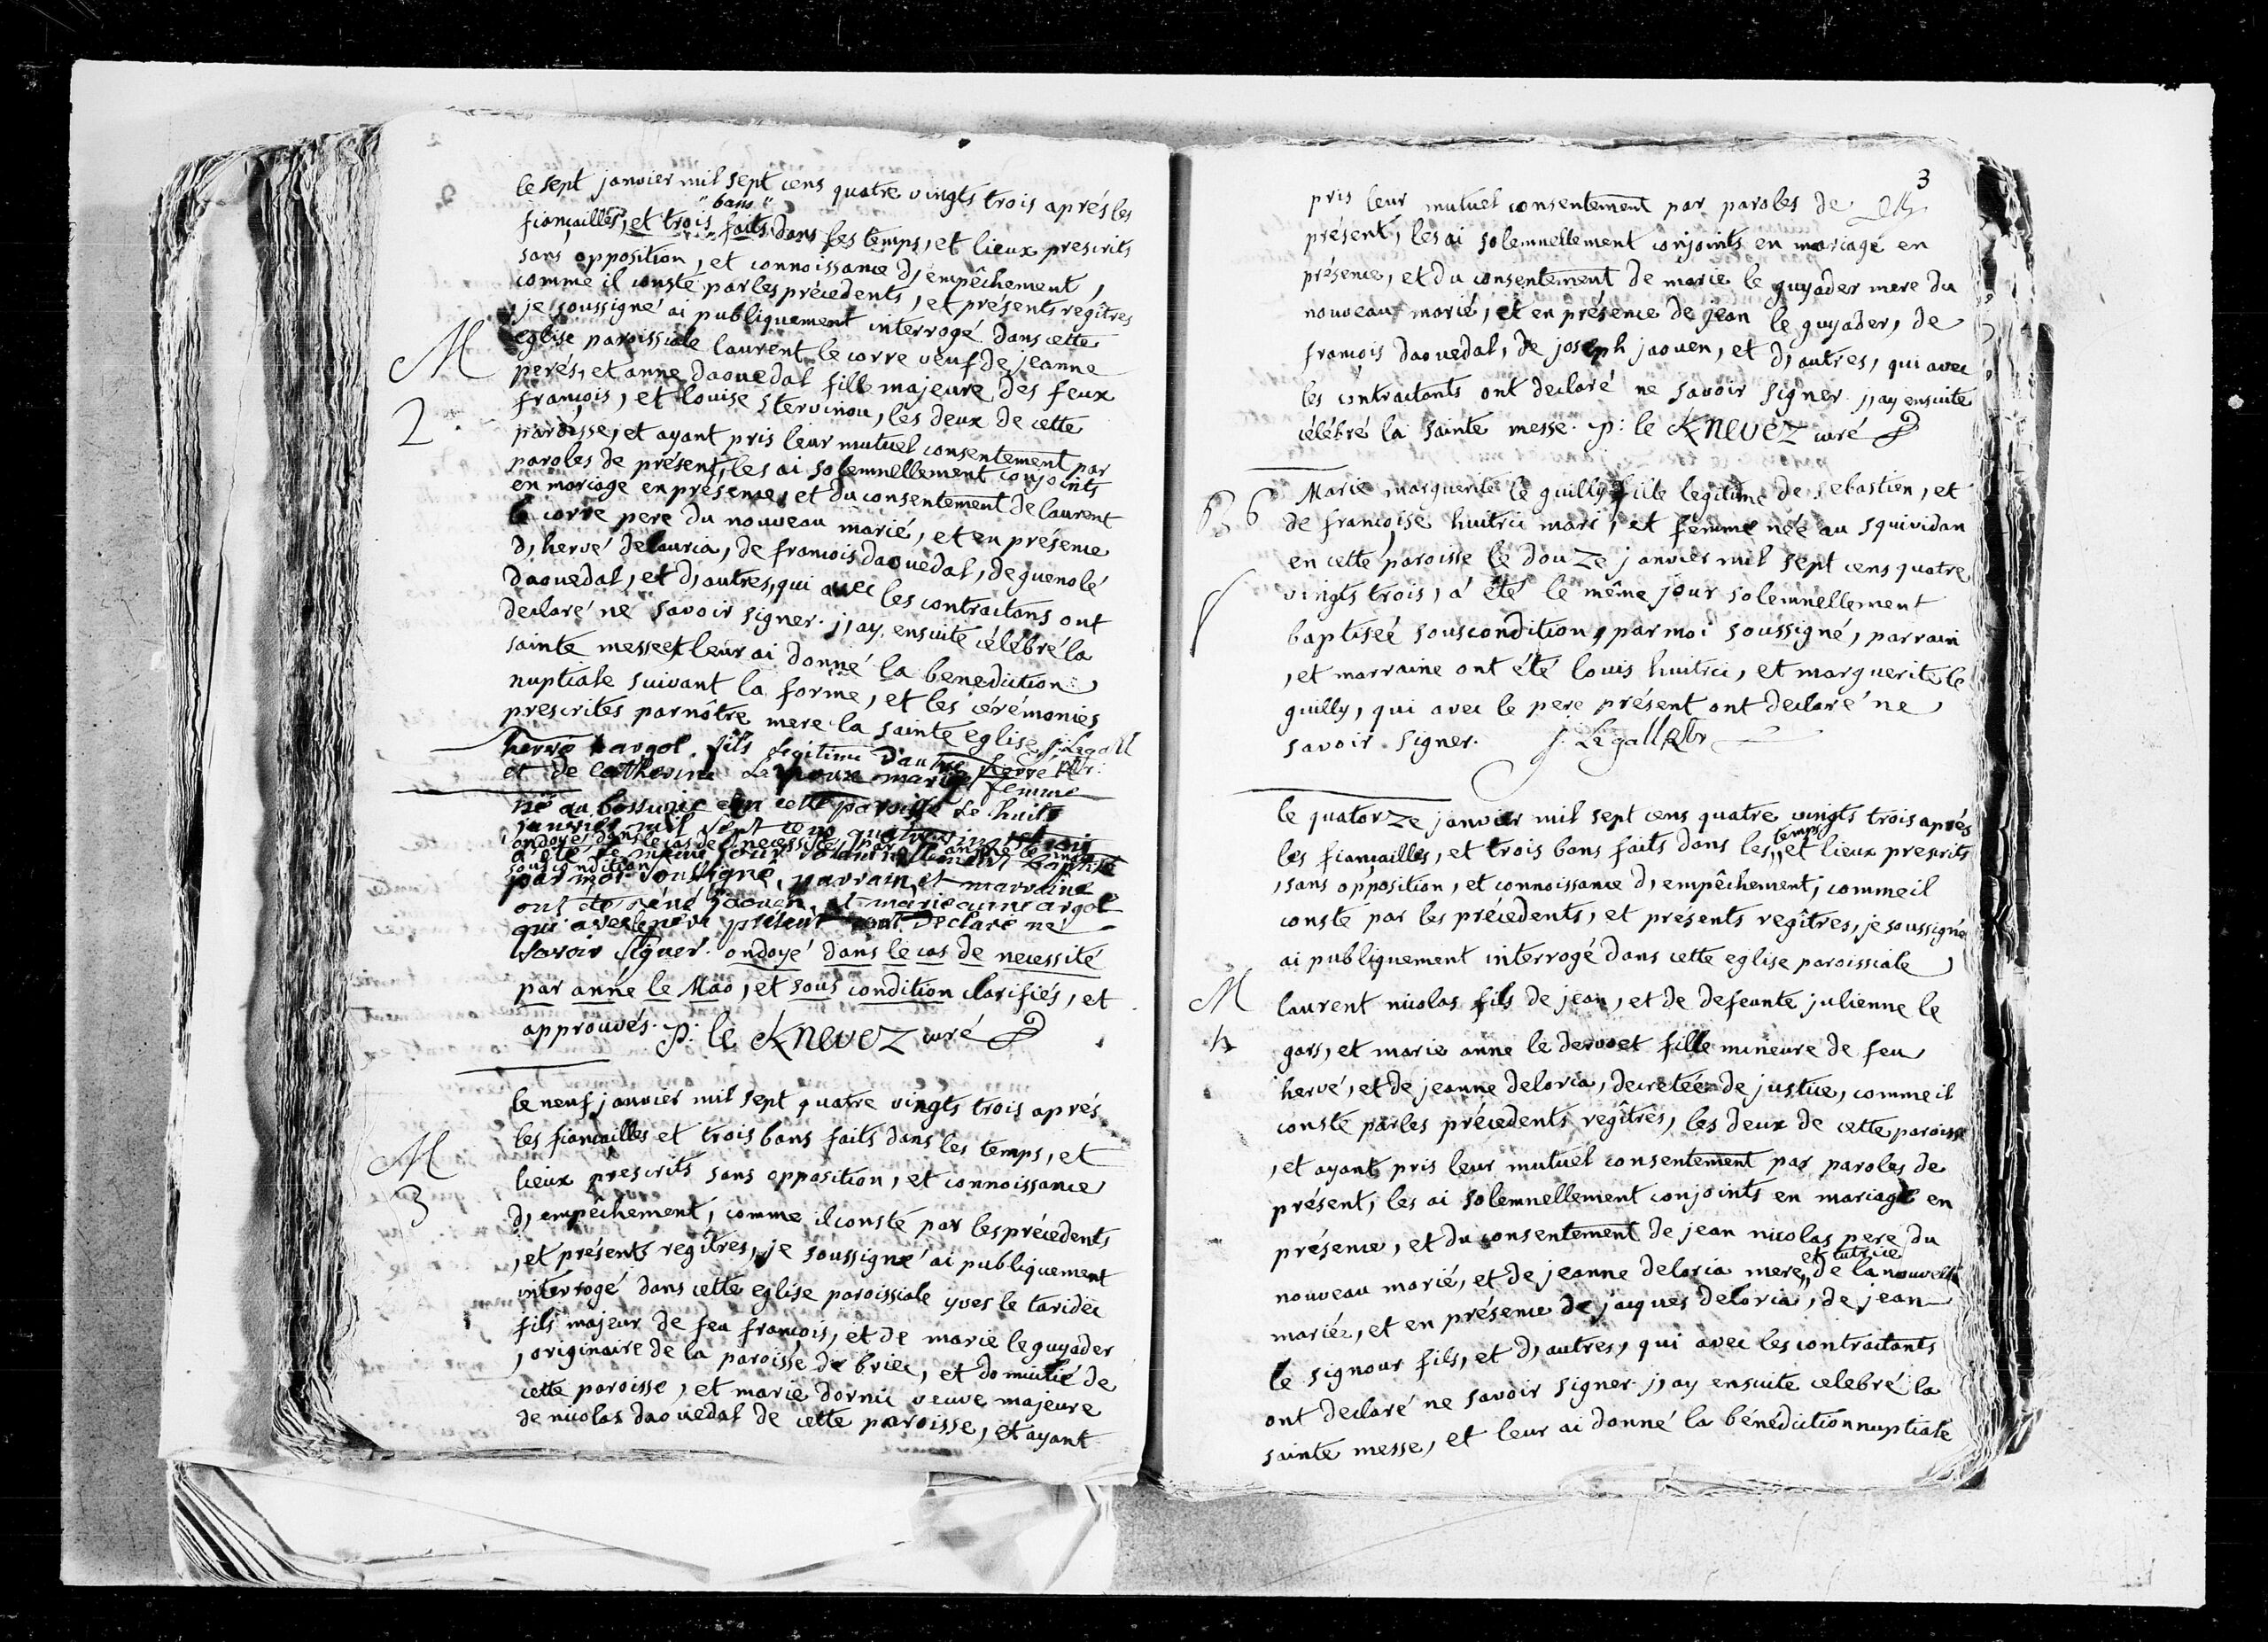 le sept janvier mil sept cens quatre vingts trois aprés les
"bans"
fiançailles, et trois faits dans les temps, et lieux prescrits
sans opposition, et connoissance d, empêchement,
comme il conste par les précedents, et présents regîtres
, je soussigné ai publiquement interrogé dans cette
eglise paroissiale laurent le corre veuf de jeanne
M
perés, et anne daouedal fille majeure des feux
françois, et louise stervinou, les deux de cette
2
paroisse, et ayant pris leur mutuel consentement par
paroles de présent, les ai solemnellement conjoints
en mariage en présence, et du consentement de laurent
le corre pere du nouveau marié, et en présence
d, hervé delauria, de françois daouedal, de guenolé
daouedal, et d, autres, qui avec les contractans ont
declaré ne savoir signer. j, ay ensuite célébré la
sainte messe et leur ai donné la benediction
nuptiale suivant la forme, et les cérémonies
prescrites par nôtre mere la sainte eglise j: Legall
hervé argol fils legitime d'autre hervé ptr:
et de Catherine mari et femme
né au en cette paroisse le huit
janvier mil sept cens quatre vingt trois
ondoyé dans le cas de necessité par anne le mao
a été le même jour solemnellement baptisé
sous condition
par moi soussigné, parrain et marraine
ont été réné jaouen et marie anne argol
qui avec le pere présent ont declaré ne
savoir signer. ondoyé dans le cas de necessité
par anne le Mao, et sous condition clarifiés, et
approuvés. p: le Knevez curé
le neuf janvier mil sept quatre vingts trois aprés
les fiançailles et trois bans faits dans les temps, et
M
lieux prescrits sans opposition, et connoissance
3
d, empêchement, comme il conste par les précedents
, et présents regîtres, je soussigné ai publiquement
interrogé dans cette eglise paroissiale yves le taridec
fils majeur de feu françois, et de marie le guyader
, originaire de la paroisse de briec, et domicilié de
cette paroisse, et marie dornic veuve majeure
de nicolas daouedal de cette paroisse, et ayant
3
pris leur mutuel consentement par paroles de
présent, les ai solemnellement conjoints en mariage en
présence, et du consentement de marie le guyader mere du
nouveau marié, et en présence de jean le guyader, de
françois daouedal, de joseph jaouen, et d, autres, qui avec
les contractants ont declaré ne savoir signer. j, ay ensuite
célébré la sainte messe. p: le Knevez curé
Marie marguerite le guilly fille legitime de sebastien, et
B 6
de françoise huitric mari, et femme née au squividan
en cette paroisse le douze janvier mil sept cens quatre
vingts trois, a été le même jour solemnellement
baptiseé sous condition, par moi soussigné, parrain
, et marraine ont été louis huitric, et marguerite le
guilly, qui avec le pere présent ont declaré ne
savoir signer. j: Legall ptr
le quatorze janvier mil sept cens quatre vingts trois aprés
temps
les fiançailles, et trois bans faits dans les,, et lieux prescrits
, sans opposition, et connoissance d, empêchement, comme il
conste par les précedents, et présents regîtres, je soussigné
ai publiquement interrogé dans cette eglise paroissiale
M
laurent nicolas fils de jean, et de defeante julienne le
4
gars, et marie anne le dervoet fille mineure de feu
hervé, et de jeanne deloria, decretée de justice, comme il
conste par les précedents regîtres, les deux de cette paroisse
, et ayant pris leur mutuel consentement par paroles de
présent, les ai solemnellement conjoints en mariage en
présence, et du consentement de jean nicolas pere du
et tutrice
nouveau marié, et de jeanne deloria mere,, de la nouvelle
mariée, et en présence de jacques deloria, de jean
le signour fils, et d, autres, qui avec les contractants
ont declaré ne savoir signer. j, ay ensuite celebré la
sainte messe, et leur ai donné la bénédiction nuptiale